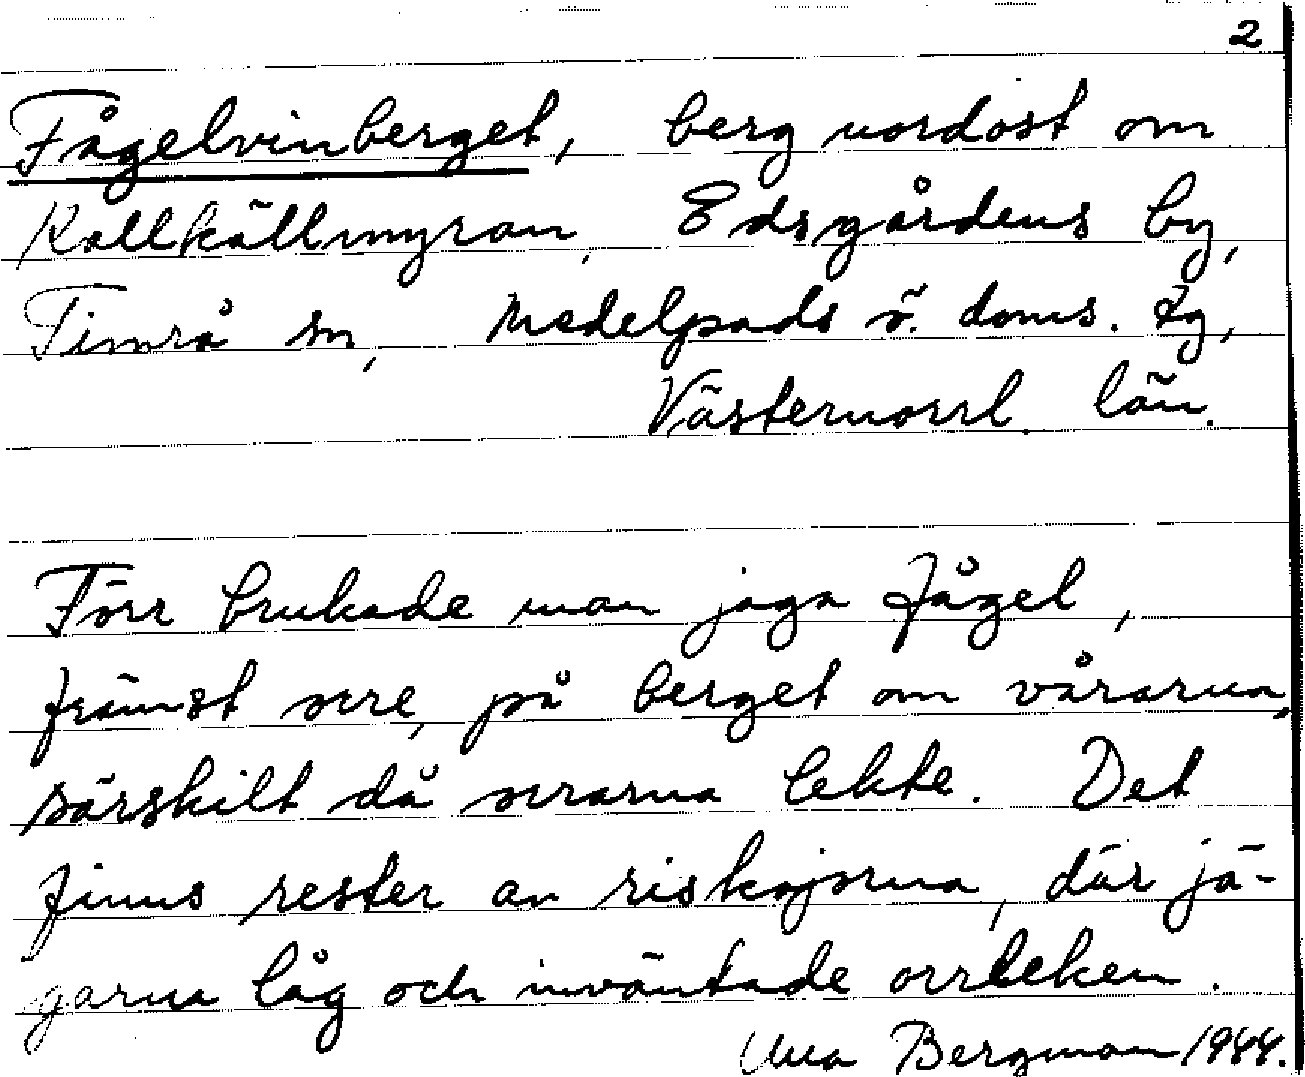 2
Fågelvinberget, berg nordost om
Kallkällmyran, Edsgårdens by,
Timrå sn, Medelpads ö. doms. tg,
Västernorrl. län.
Förr brukade man jaga fågel,
främst orre, på berget om vårarna,
särskilt då orrarna lekte. Det
finns rester av riskojorna, där jä-
garna låg och inväntade orrleken.
Una Bergman 1944.